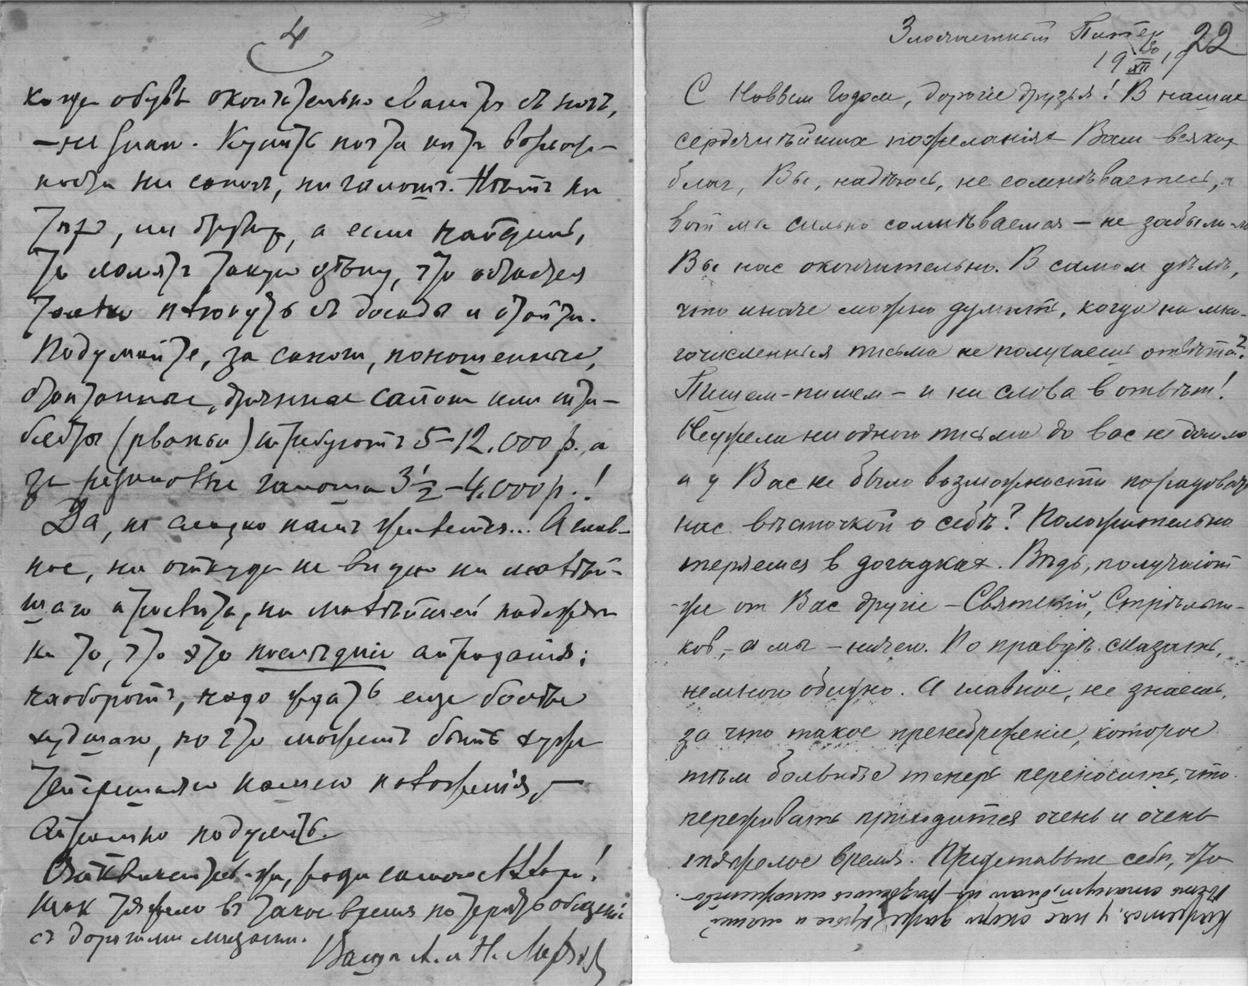 4
когда обувь окончательно свалится съ ногъ,
— не знаю. Купить почти нѣтъ возмож-
ности ни сапогъ, ни галошъ. Нѣтъ ни
тѣхъ, ни другихъ, а если найдешь,
то ломятъ такую цѣну, что остается
только плюнуть съ досады и отойти.
Подумайте, за сапоги, поношенные,
дрянные сапоги или шти-
блеты (рваные) требуютъ 5–12.000 р., а
за резиновыя галоши 3½–4.000 р.!
Да, не сладко намъ живется... А глав-
ное, ни откуда не видно ни малѣй-
шаго просвѣта, ни малѣйшей надежды
на то, что это послѣднія страданія;
наоборотъ, надо ждать еще болѣе
худшаго, но что можетъ быть хуже
теперешняго нашего положенія, —
страшно подумать.
Откликнитесь-же, ради самого Неба!
Такъ тяжело въ такое время потерять общеніе
съ дорогими лицами.
Ваши А. и Н.
22
Злосчастный Питер
19 XII 19
С Новым Годом, дорогие друзья! В наших
сердечнѣйших пожеланіях Вам всяких
благ, Вы, надѣюсь, не сомнѣваетесь, а
вот мы сильно сомнѣваемся — не забыли-ли
Вы нас окончательно. В самом дѣлѣ,
что иначе можно думать, когда на мно-
гочисленныя письма не получаешь отвѣта?
Пишем-пишем — и ни слова в отвѣт!
Неужели ни одного письма до вас не дошло
и у Вас не было возможности порадовать
нас вѣсточкой о себѣ? Положительно
теряемся в догадках. Вѣдь, получают
же от Вас другіе — Святскій, Стрѣльни-
ков, а мы — ничего. По правдѣ сказать,
немного обидно. А главное, не знаешь,
за что такое пренебреженіе, которое
тѣм больнѣе теперь переносить, что
переживать приходится очень и очень
тяжелое время. Представьте себѣ, что